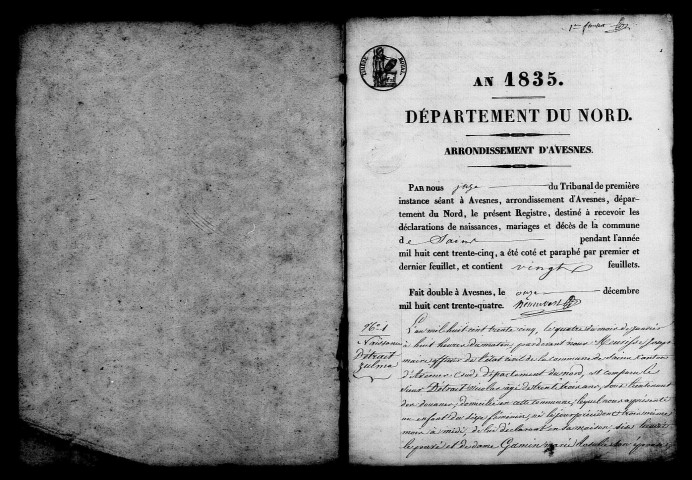 1er feuillet
TIMBRE ROYAL
AN 1835.
DÉPARTEMENT DU NORD.
ARRONDISSEMENT D'AVESNES.
PAR nous juge du Tribunal de première
instance séant à Avesnes, arrondissement d'Avesnes, dépar-
tement du Nord, le présent Registre, destiné à recevoir les
déclarations de naissances, mariages et décès de la commune
de Sains pendant l'année
mil huit cent trente-cinq, a été coté et paraphé par premier et
dernier feuillet, et contient vingt feuillets.
Fait double à Avesnes, le onze décembre
mil huit cent trente-quatre.
No 1
Naissance
Détrait
Zulma
L'an mil huit cent trente cinq, le quatre du mois de janvier
à huit heures du matin, pardevant nous
maire officier de l'état civil de la commune de Sains, canton
d'Avesnes sud, département du nord, est comparu le
sieur Détrait Nicolas âgé de trente trois ans, sous lieutenant
des douanes, domicilié en cette commune, lequel nous a présenté
un enfant du sexe féminin, né le jour précédent trois même
mois à midi, de lui déclarant en sa maison,
et de dame Gamin marie Rosalie son épouse